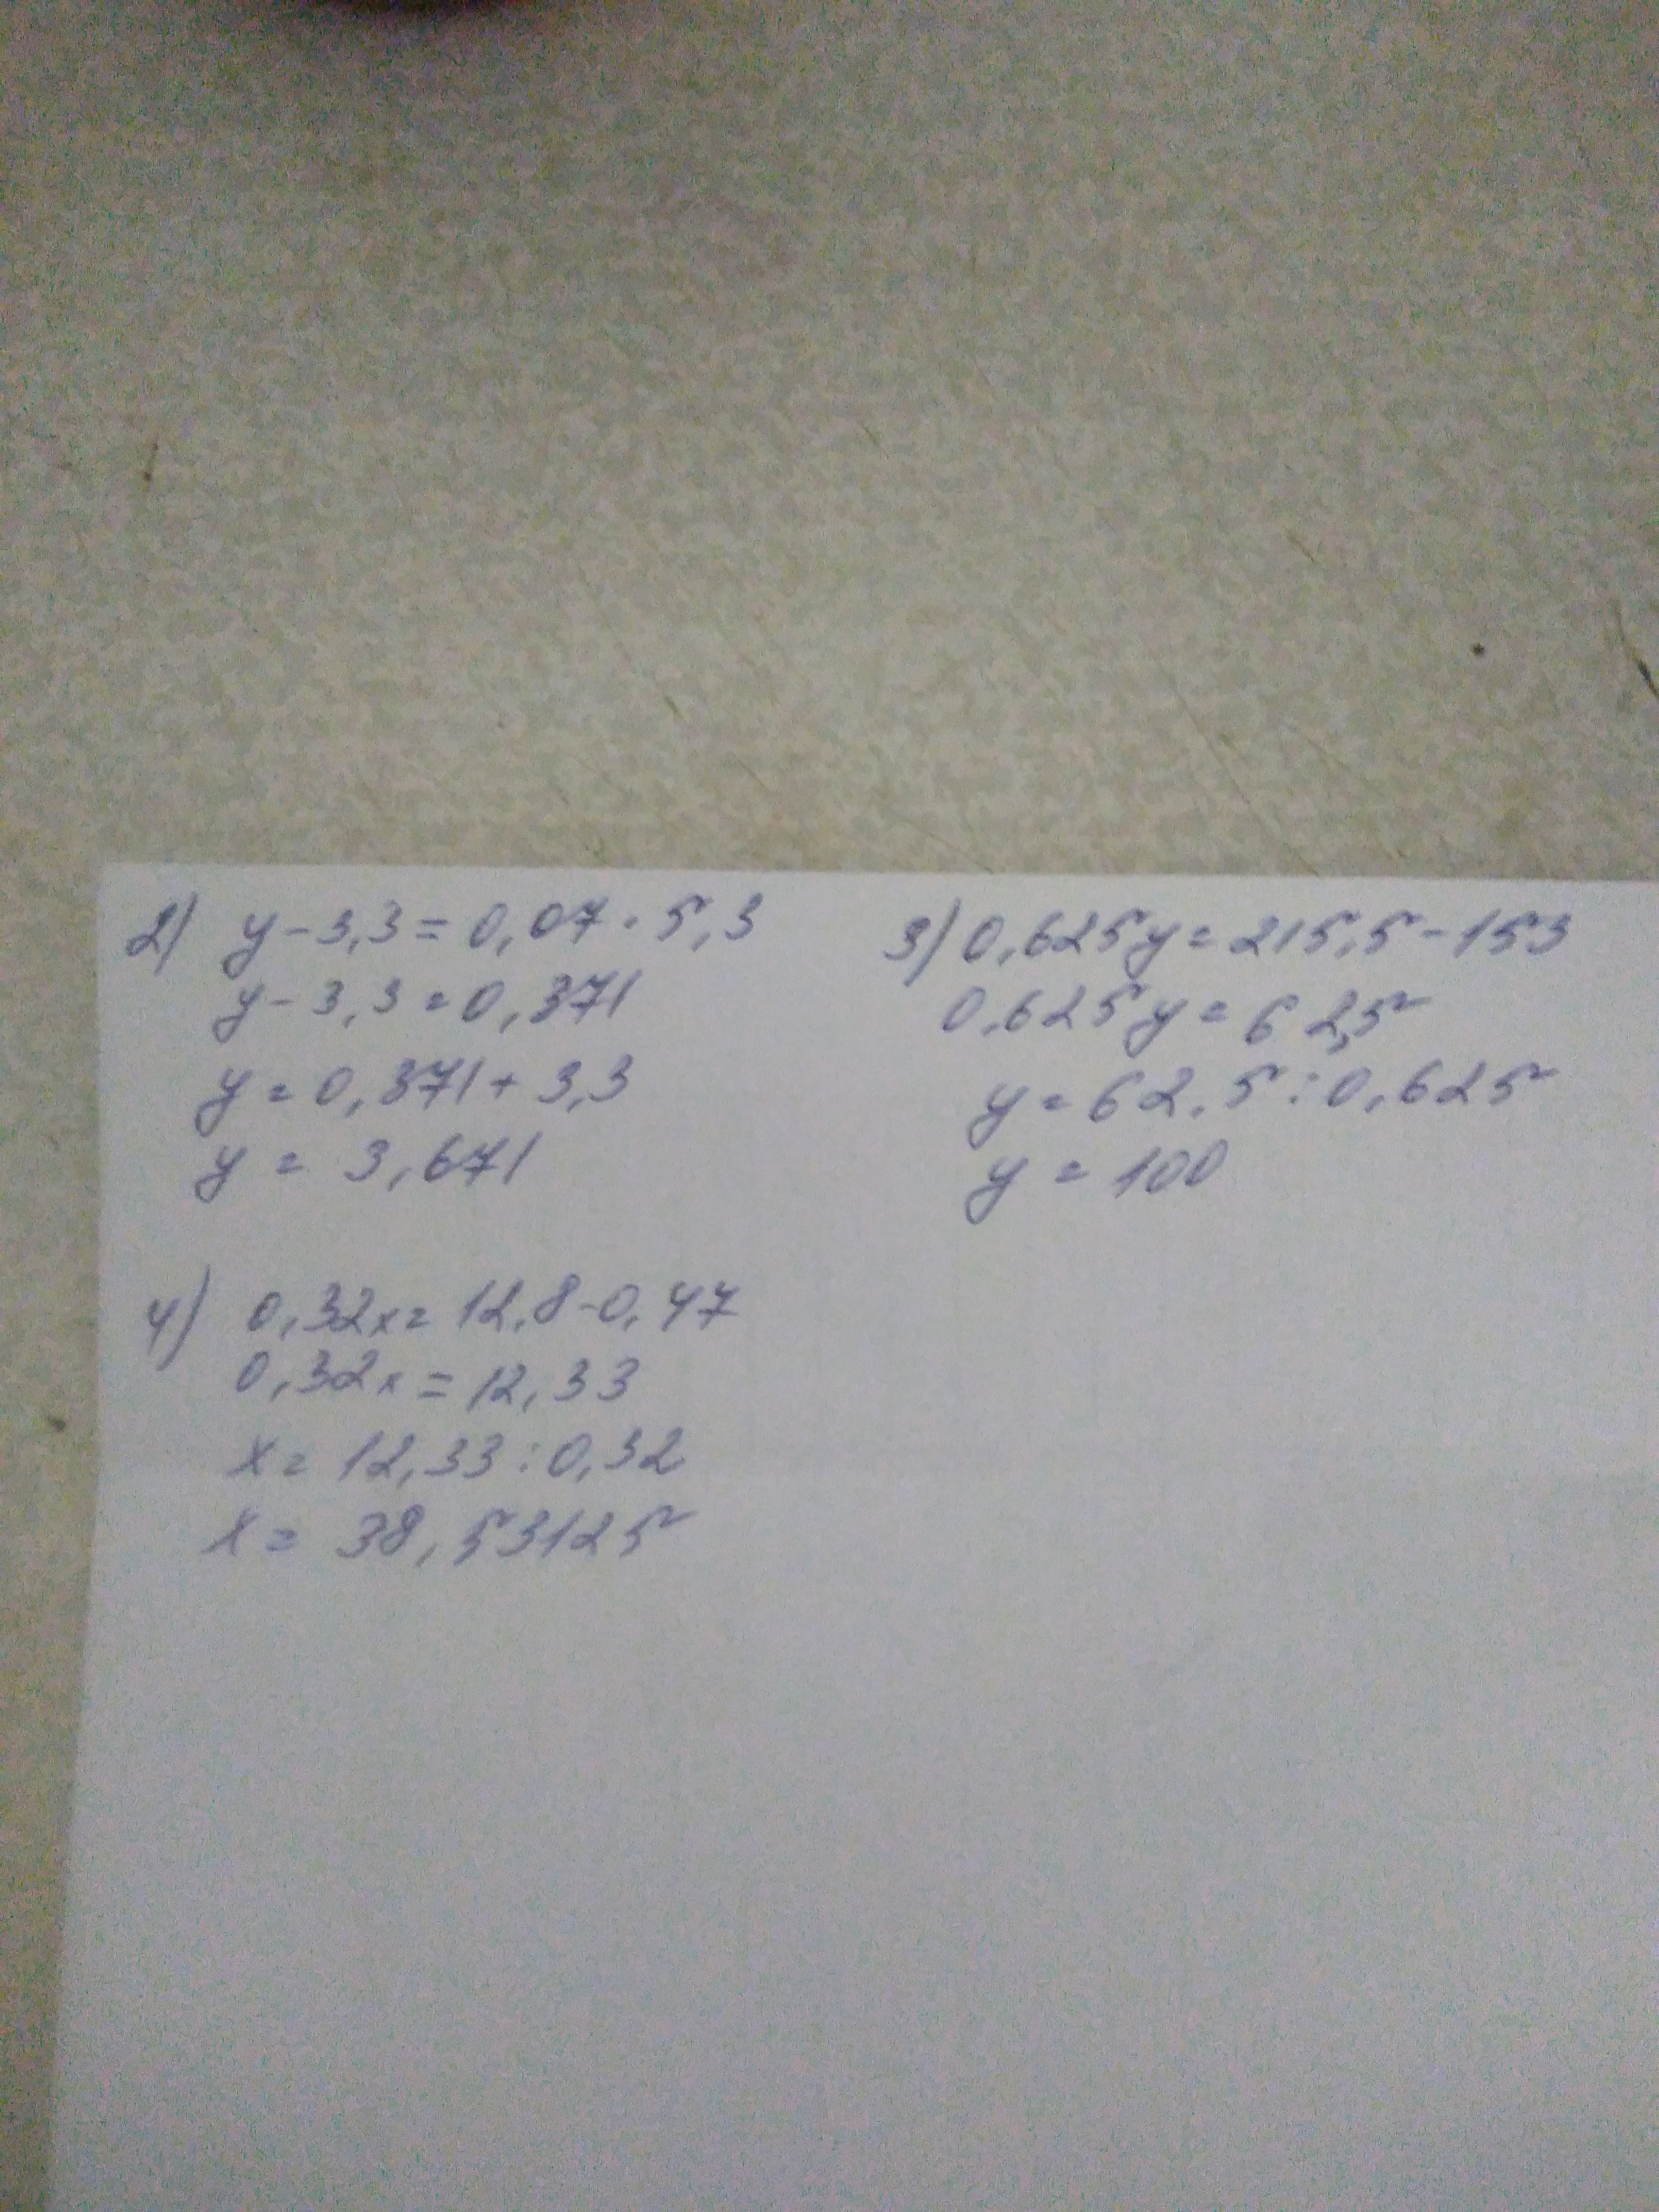 2) y-3,3=0,07·5,3
y-3,3=0,371
y=0,371+3,3
y=3,671
3) 0,625y=215,5-153
0,625y=62,5
y=62,5:0,625
y=100
4) 0,32x=12,8-0,47
0,32x=12,33
x=12,33:0,32
x=38,53125